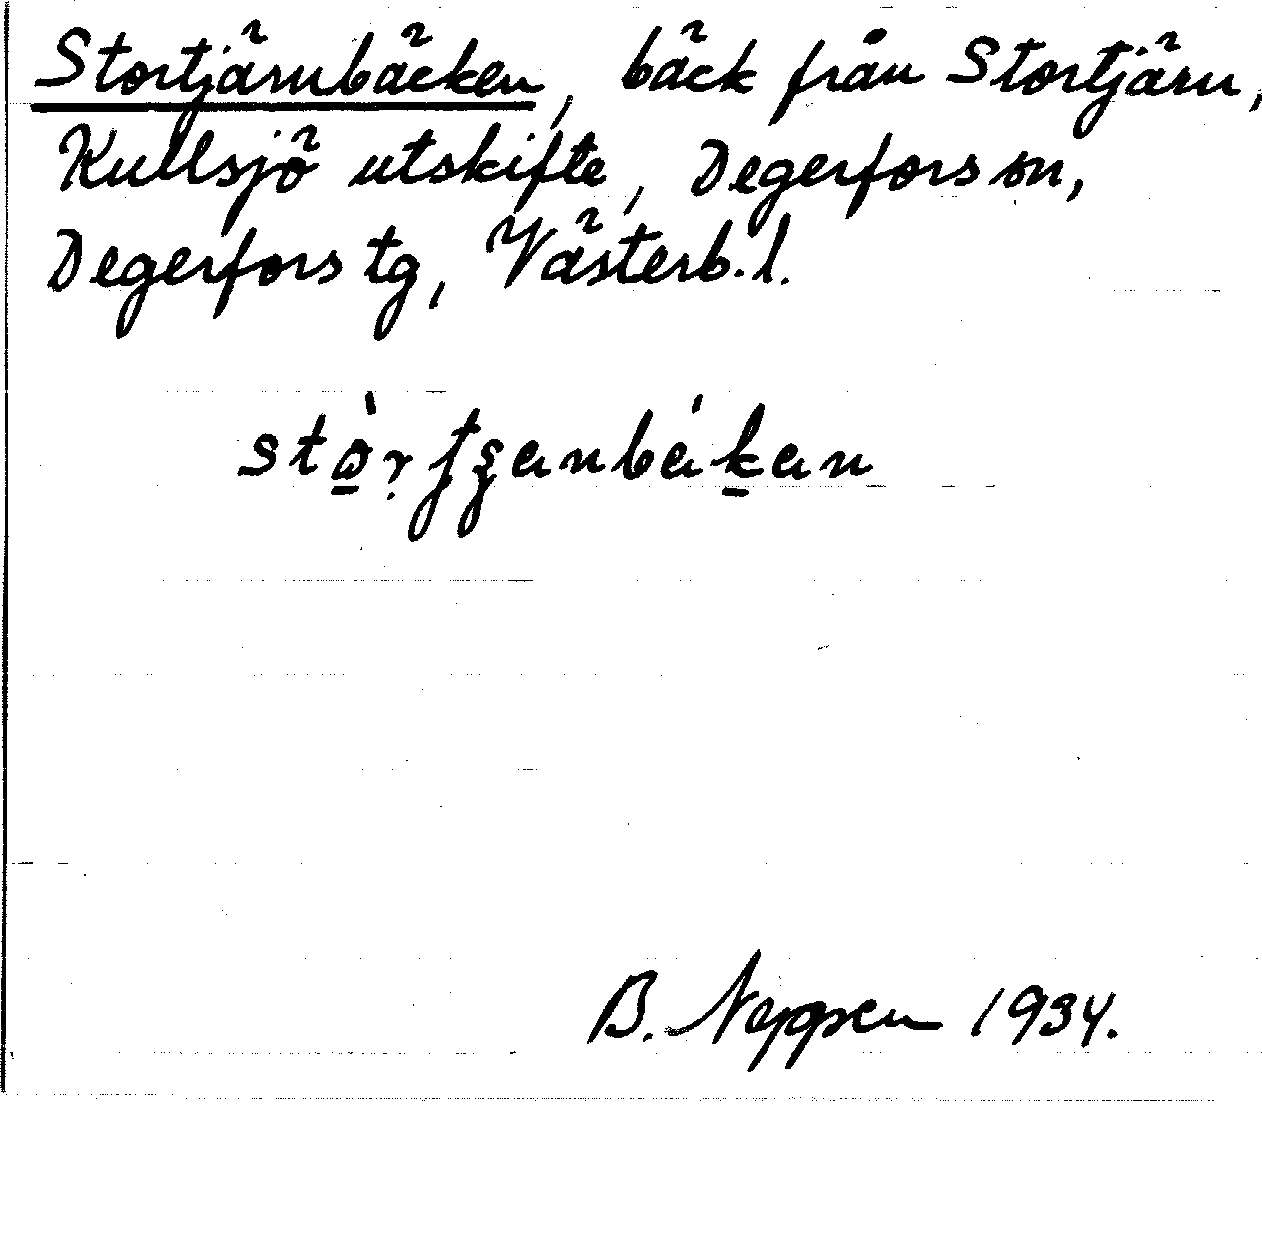 Stortjärnbäcken, bäck från Stortjärn,
Kullsjö utskifte, Degerfors sn,
Degerfors tg, Västerb. l.
B. 1934.